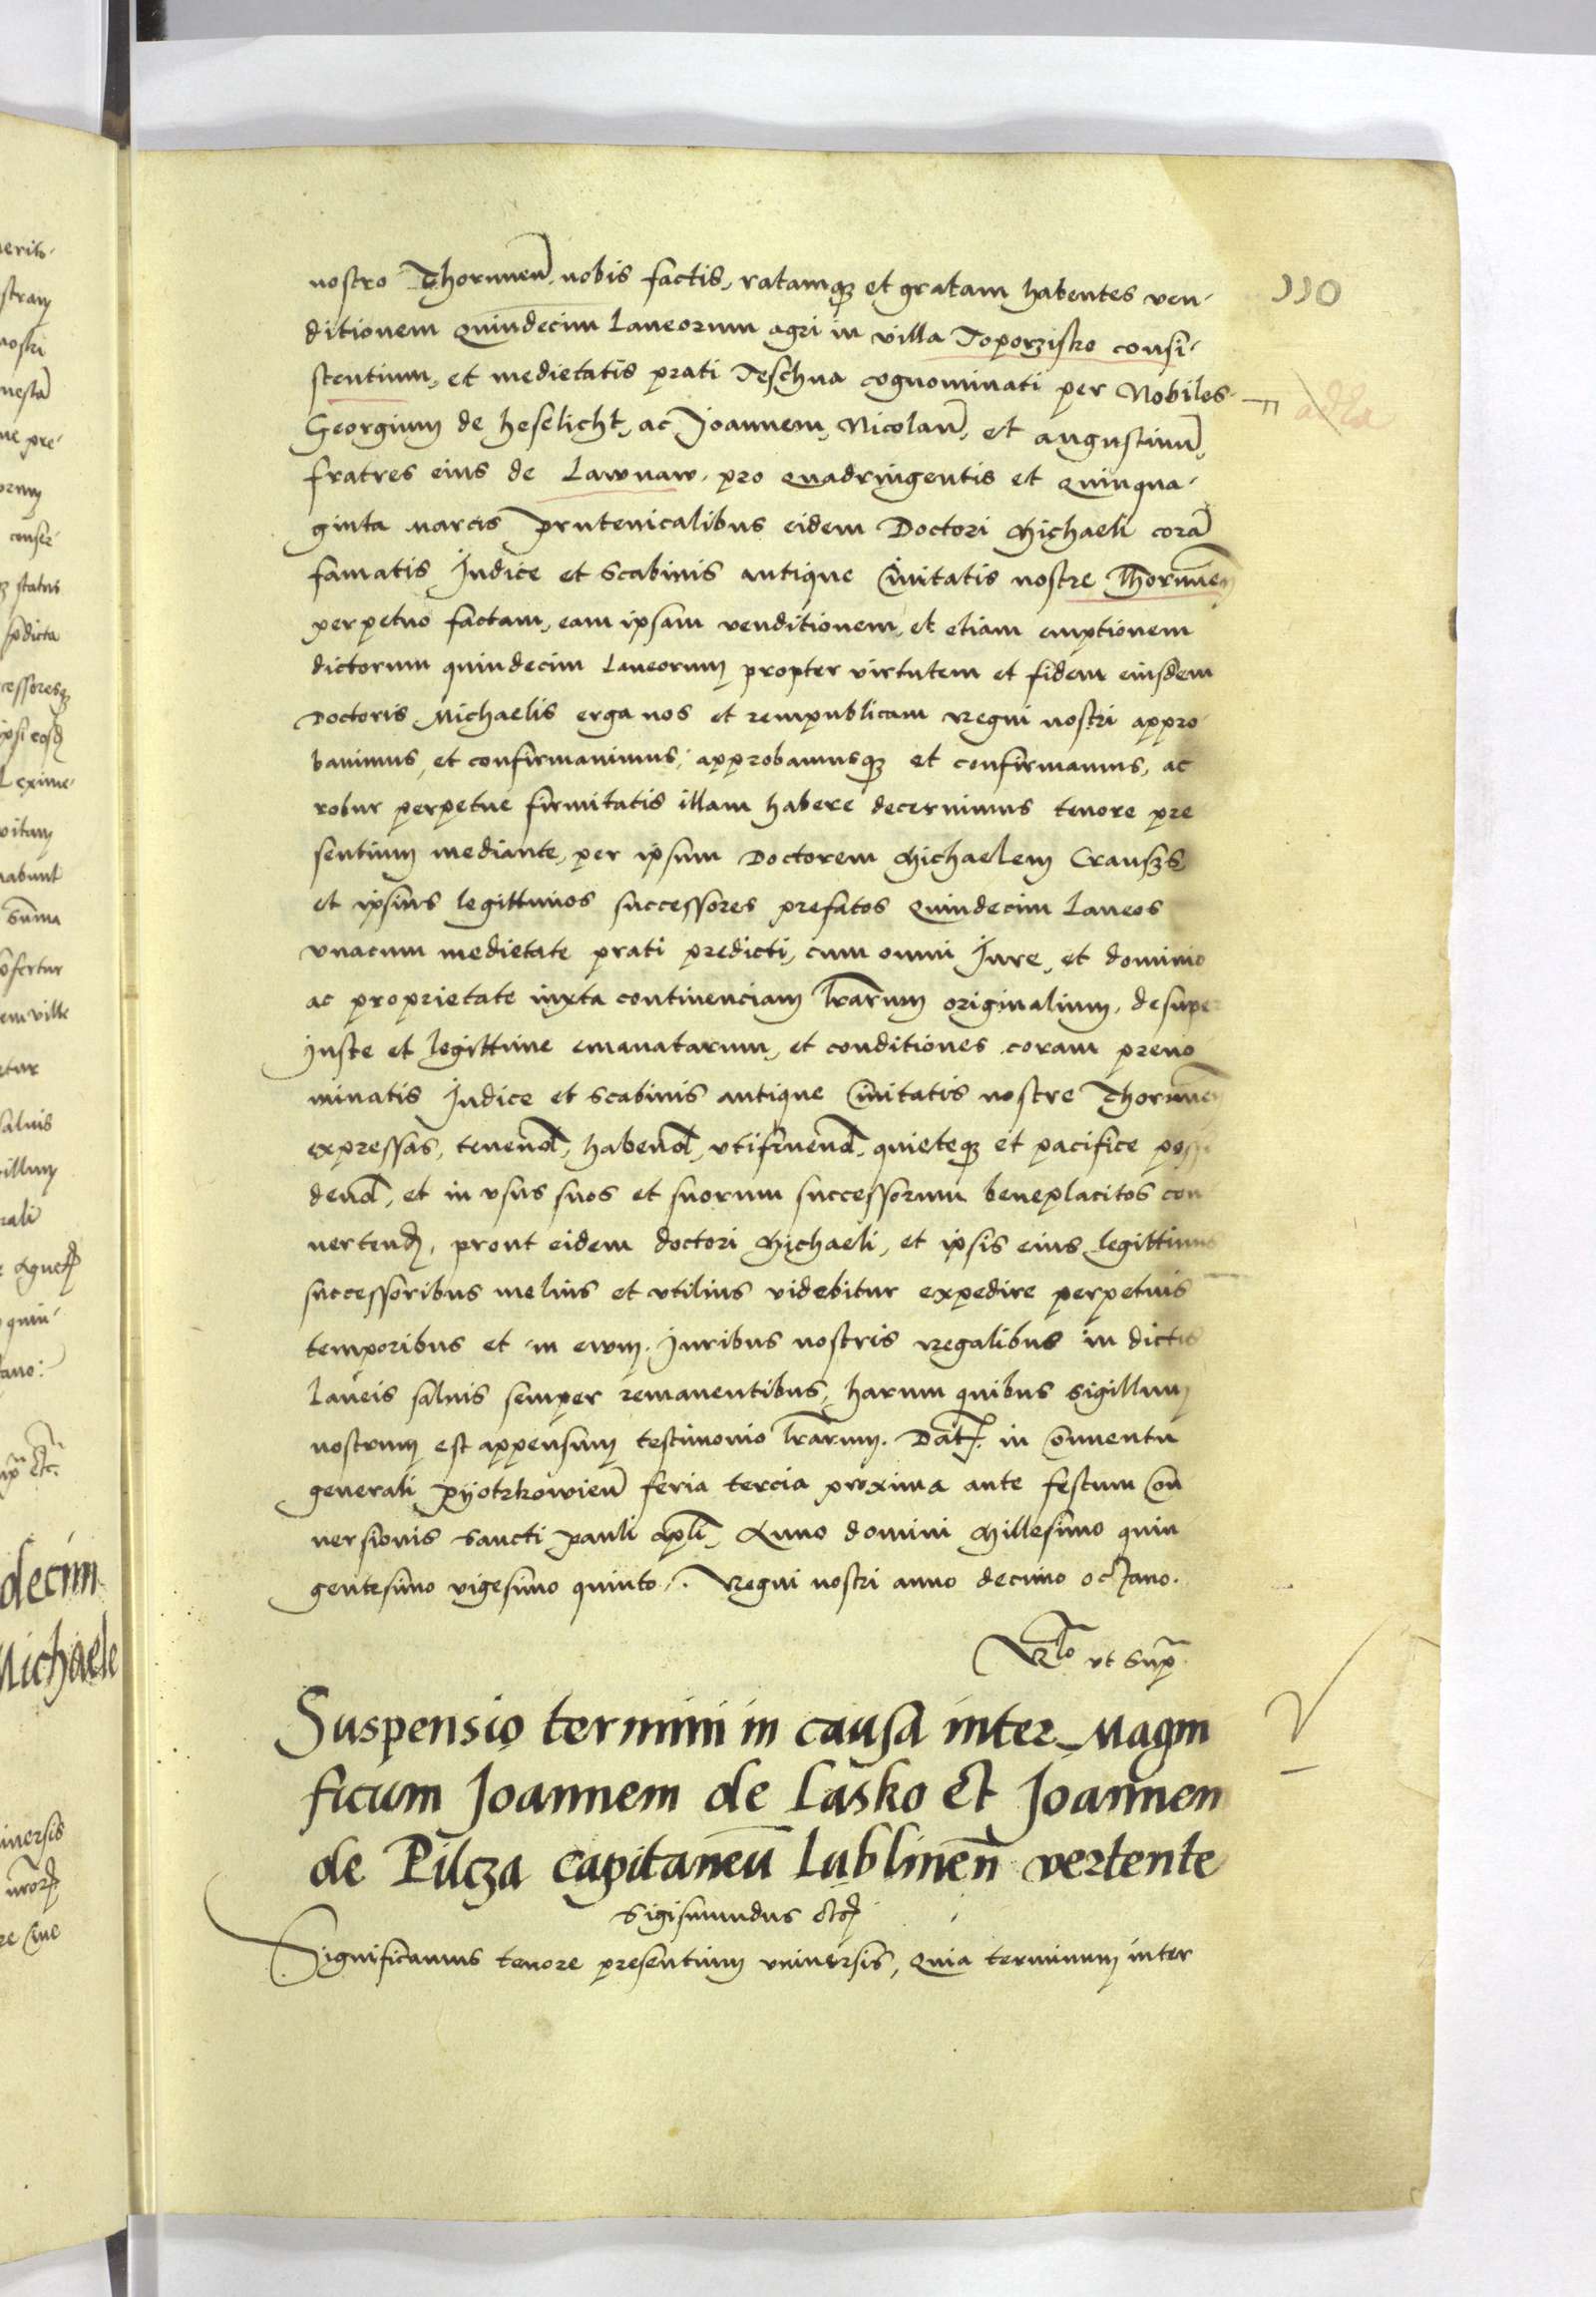 110
nostro Thorunen̄. nobis factis, ratamqꝫ et gratam habentes ven-
ditionem quindecim laneorum agri in villa Toporzisko consi-
stentium, et medietatis prati Teschna cognominati per Nobiles
Georgium de heselicht, ac Joannem, Nicolaū, et augustinū,
fratres eius de Lawnaw. pro quadringentis et quinqua-
ginta marcis prutenicalibus eidem Doctori Michaeli corā
famatis Judice et scabinis antique Civitatis nostre Thorunen̄
perpetuo factam, eam ipsam venditionem, et etiam emptionem
dictorum quindecim laneorum propter virtutem et fidem eiusdem
Doctoris Michaelis erga nos et rempublicam regni nostri appro
bauimus, et confirmauimus, approbamusqꝫ et confirmamus, ac
robur perpetue firmitatis illam habere decernimus tenore pre
sentium mediante, per ipsum Doctorem Michaelem Crauszs
et ipsius legittimos successores prefatos quindecim laneos
vnacum medietate prati predicti, cum omni Jure, et dominio
ac proprietate iuxta continenciam lrārum originalium, desuper
Juste et legittime emanatarum, et conditiones coram preno
minatis Judice et scabinis antique Civitatis nostre Thorunen̄
expressas, tenend̄, habend̄, vtifruend̄, quieteqꝫ et pacifice possi
dend̄, et in vsus suos et suorum successorum beneplacitos con
uertend̄, prout eidem doctori Michaeli, et ipsis eius legittimis
successoribus melius et vtilius videbitur expedire perpetuis
temporibus et in ewm. Juribus nostris regalibus in dictis
laneis saluis semper remanentibus, harum quibus sigillum
nostrum est appensum testimonio lrārum. Dat̄. in Conuentu
generali Pyotrkowien̄ feria tercia proxima ante festum Con
uersionis sancti Pauli apl̄i, Anno domini Millesimo quin
gentesimo vigesimo quinto. Regni nostri anno decimo octauo.
R̄lo vt sup̄
Suspensio termini in causa inter Magni
ficum Joannem de Lasko et Joannem
de Pilcza capitaneū Lublinen̄ vertente
Sigismundus etc̄
Significamus tenore presentium vniuersis, quia terminum inter